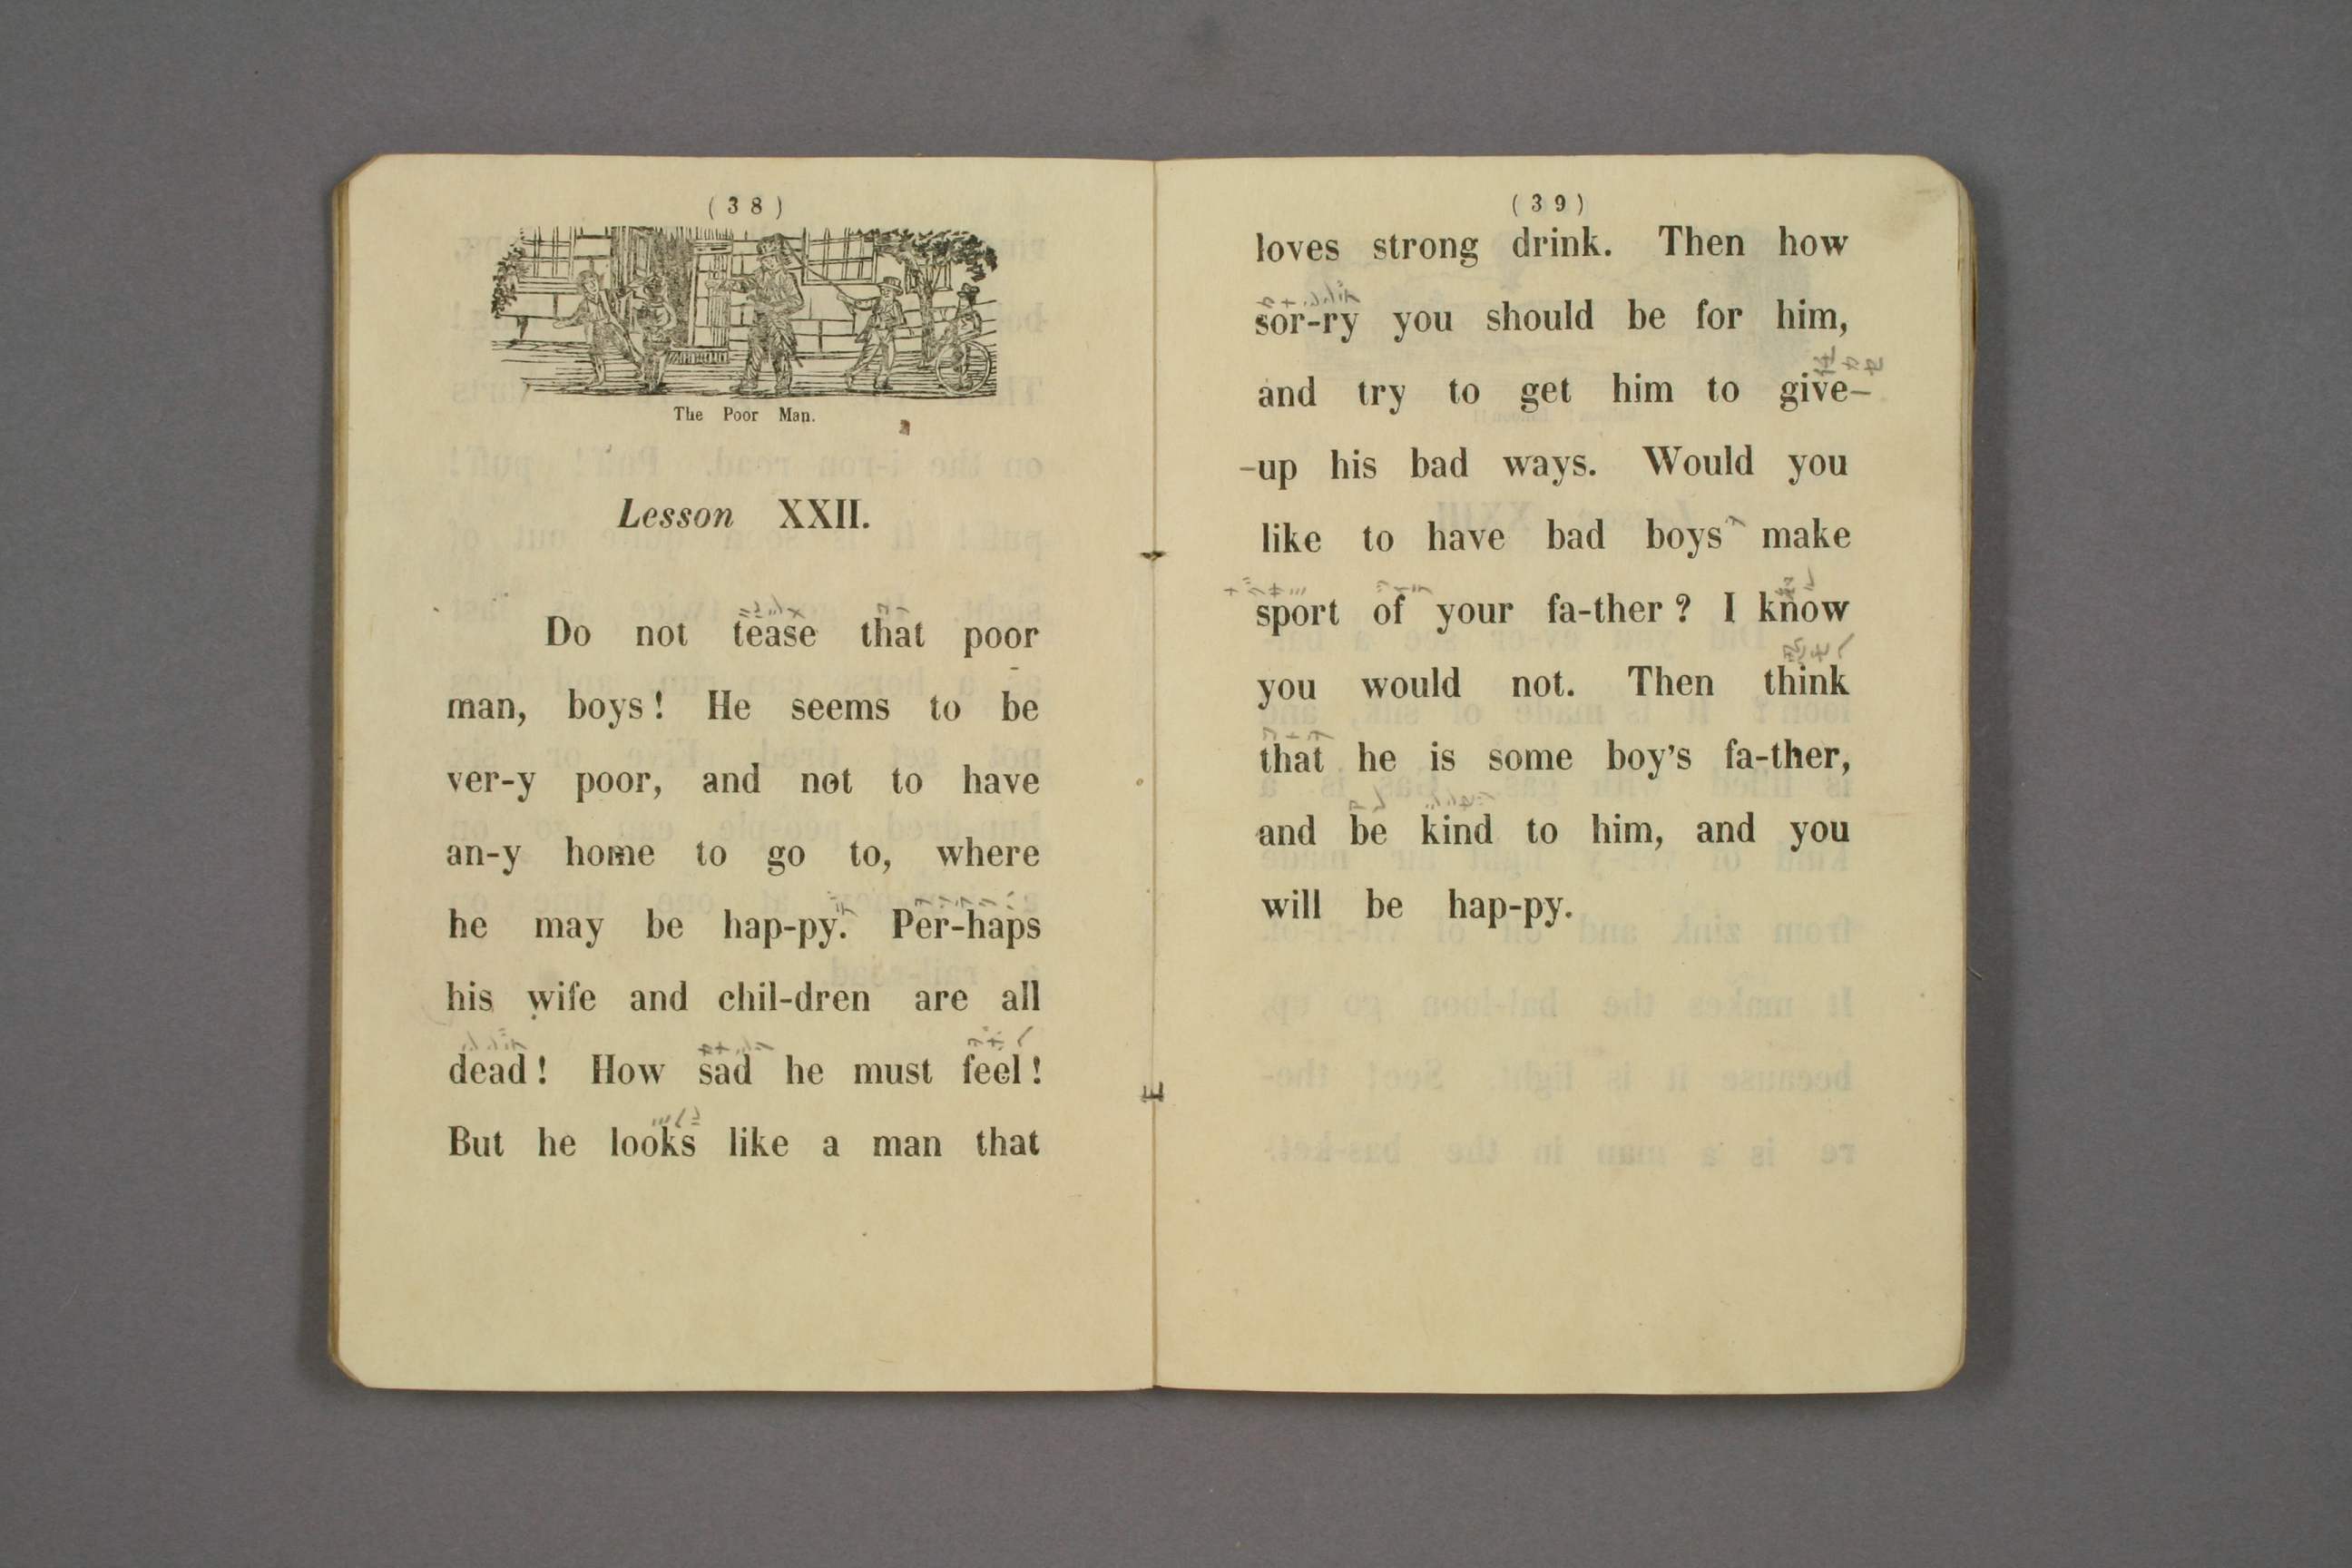 ( 3 8 )
The Poor Man.
Lesson XXII.
Do not tease that poor
man, boys! He seems to be
ver-y poor, and not to have
an-y home to go to, where
he may be hap-py. Per-haps
his wife and chil-dren are all
dead! How sad he must feel!
But he looks like a man that
( 3 9 )
loves strong drink. Then how
sor-ry you should be for him,
and try to get him to give-
-up his bad ways. Would you
like to have bad boys make
sport of your fa-ther? I know
you would not. Then think
that he is some boy's fa-ther,
and be kind to him, and you
will be hap-py.